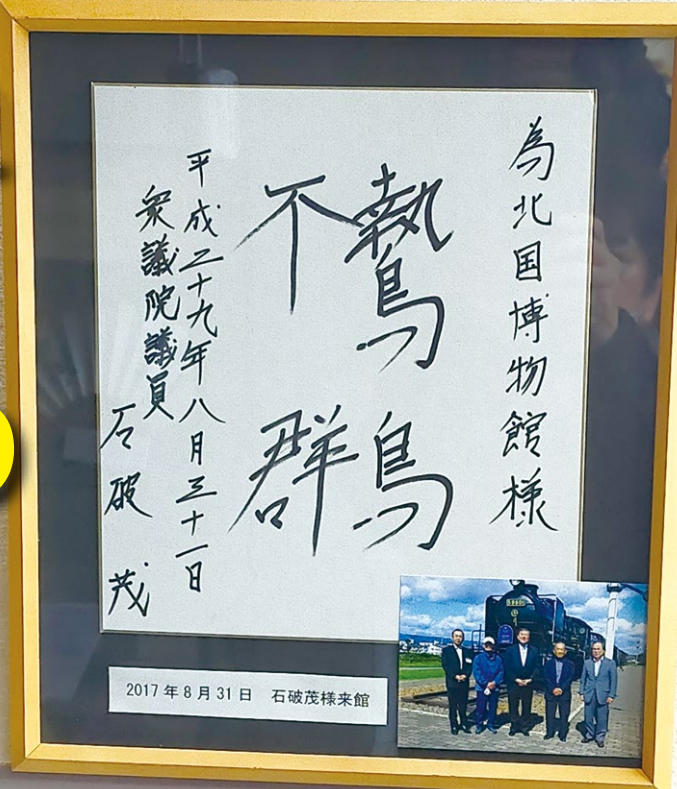 為北国博物館様
鷙鳥
不群
平成二十九年八月三十一日
衆議院議員
石破茂
2017年8月31日　石破茂様来館